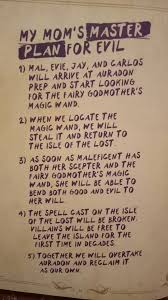 MY MOM'S MASTER
PLAN FOR EVIL
1) MAL, EVIE, JAY, AND CARLOS
WILL ARRIVE AT AURADON
PREP AND START LOOKING
FOR THE FAIRY GODMOTHER'S
MAGIC WAND.
2) WHEN WE LOCATE THE
MAGIC WAND, WE WILL
STEAL IT AND RETURN TO
THE ISLE OF THE LOST.
3) AS SOON AS MALEFICENT HAS
BOTH HER SCEPTER AND THE
FAIRY GODMOTHER'S MAGIC
WAND, SHE WILL BE ABLE TO
BEND BOTH GOOD AND EVIL TO
HER WILL.
4) THE SPELL CAST ON THE ISLE
OF THE LOST WILL BE BROKEN.
VILLAINS WILL BE FREE TO
LEAVE THE ISLAND FOR THE
FIRST TIME IN DECADES.
5) TOGETHER WE WILL OVERTAKE
AURADON AND RECLAIM IT
AS OUR OWN.